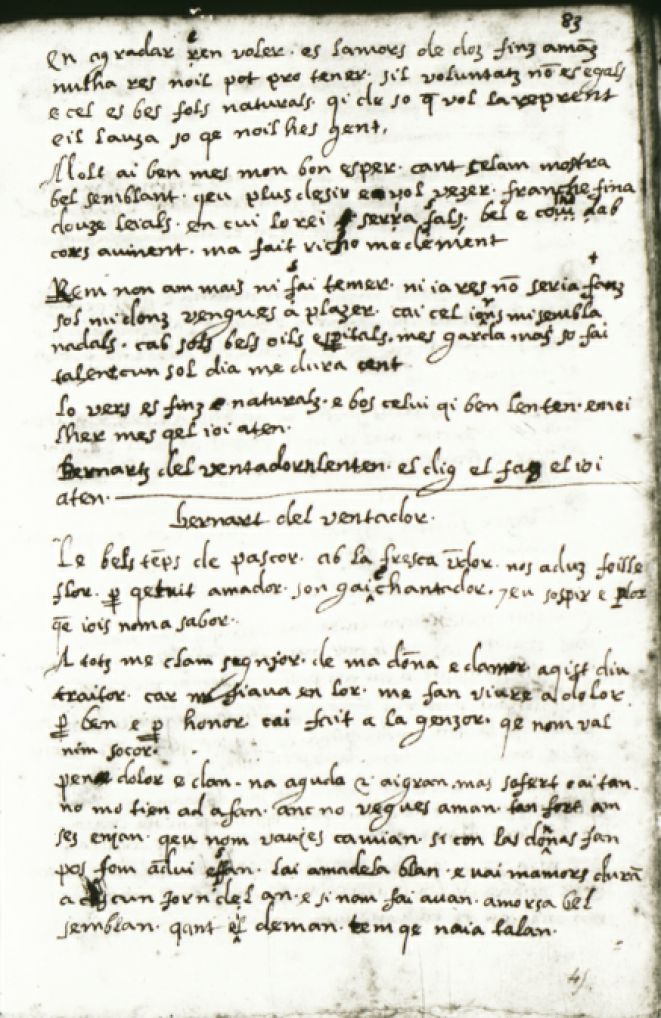 83
En agradar e ren voler · es lamors de doz finz amāz
nulha res noil pot pro tener · sil voluntatz nō es egals
e cel es bes fols naturals · qi de so q̄ vol la reprent
eil lauza so qe noil hes gent,
Molt ai ben mes mon bon esper · cant celam mostra
bel semblant · qeu plus desir e vol vezer · franche fina
douze leials · en cui lo rei serra sals · bel e com dab
cors avinent · ma fait richo me clement
Ren non am mais ni sai temer · ni ia res nō seria fanz
sol midonz vengues a plazer · cai cel iorns mi sembla
nadals · cab sols bels oils espitals · mes garda mas so fai
talent cun sol dia me dura cent
lo vers es finz e naturalz · e bos celui qi ben lenten · e mei
lher mes qel ioi aten ·
Bernartz del ventadorn lenten · el diz el faz el ioi
aten ·
bernart del ventador ·
Le bels tēps de pascor · ab la fresca v̄dor · nos aduz foille
flor · p̱ qe tuit amador · son gai e chantador · ⁊ eu sospir e plor
qe iois noma sabor ·
A totz me clam segnjor · de ma dōna e damor aqist diu
traitor · car me fiava en lor · me fan viure a dolor
p̱ ben e p̱ honor cai fait a la genzor · qe nom val
nim socor ·
pena dolor e dan · na aguda ⁊ ai gran mas sofert o ai tan ·
no mo tien ad afan · anc no vegues aman · tan fort am
ses enjan · qeu nom vaujes camian · si con las dōnas fan
pos fom ādui efan · lai amada blan · e vai mamors durā
a cascun jorn del an · e si nom fai avan · amorsa bel
semblan · qant el deman · tem qe naia talan ·